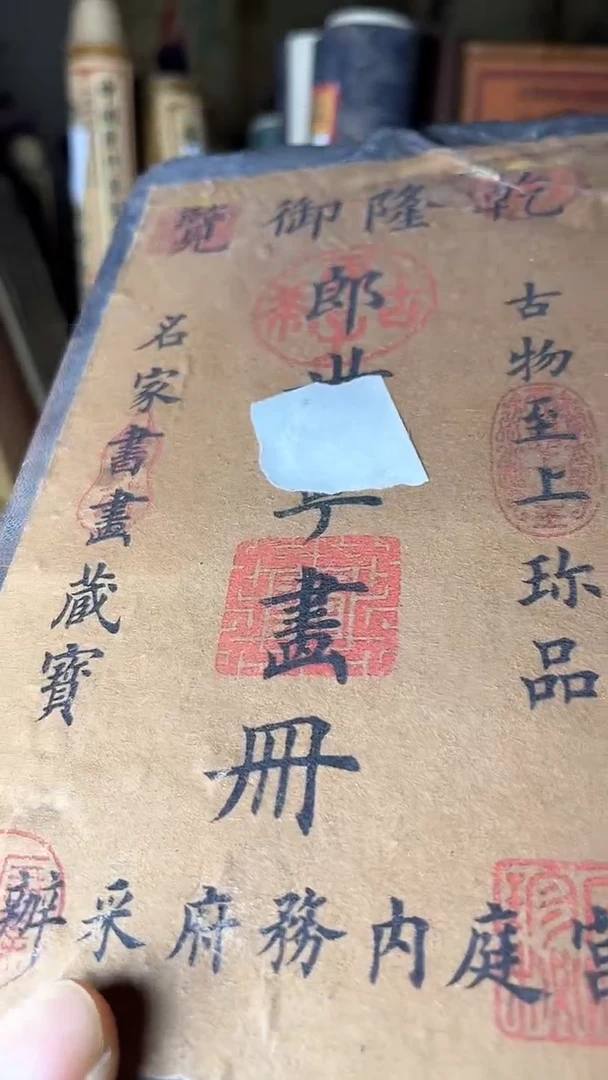 乾隆御覽
古物至上珎品
郎畫冊
名家書畫蔵寶
庭内務府采辦